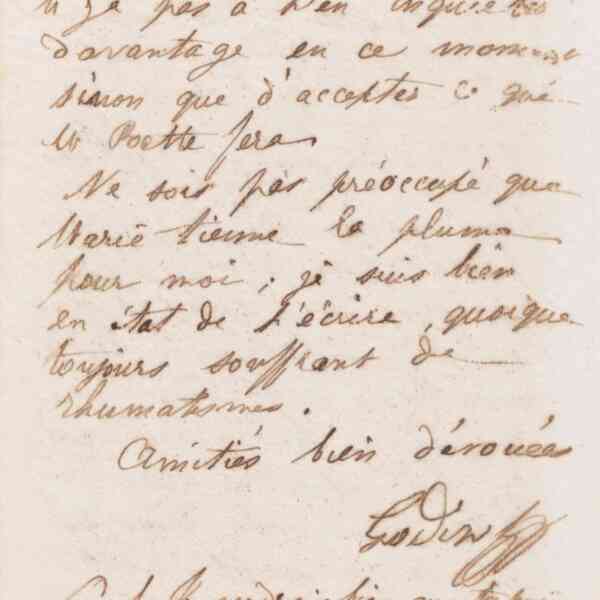 pas à s'en inquiéter
davantage en ce moment
sinon que d'accepter ce que
M Poette fera
Ne sois pas préoccupé que
Marie tienne la plume
pour moi ; je suis bien
en état de t'écrire, quoique
toujours souffrant de
rhumatismes.
Amitiés bien dévouées
Godin